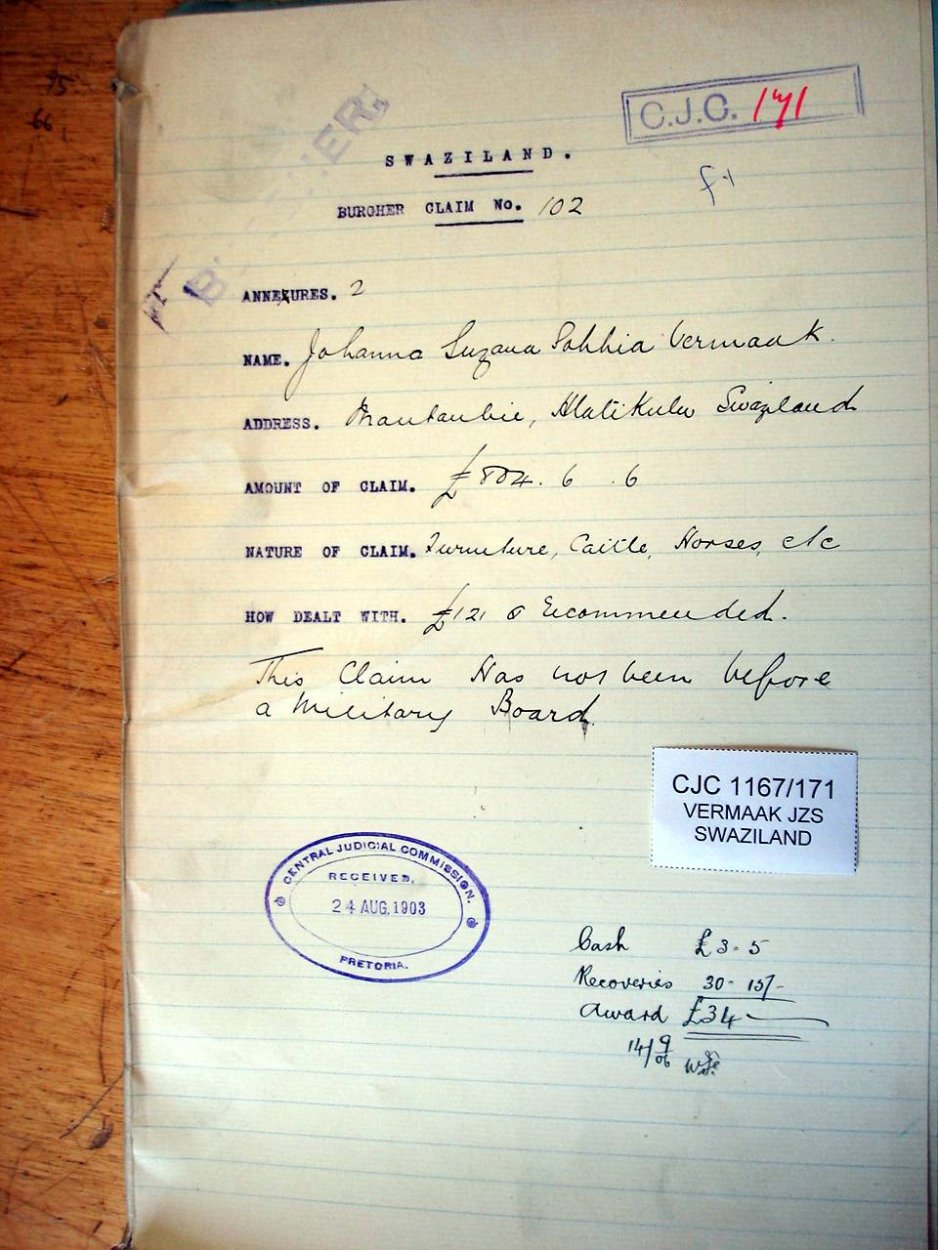 75
66
C.J.C. 171
SWAZILAND.
BURGHER CLAIM No. 102
ANNEXURES. 2
NAME. Johanna Suzana Sophia Vermaak.
ADDRESS. Hlatikulu Swaziland
AMOUNT OF CLAIM. £804. 6 . 6
NATURE OF CLAIM. Furniture, Cattle, Horses, etc
HOW DEALT WITH. £121 Recommended.
This Claim Has not been before
a Military Board.
CJC 1167/171
VERMAAK JZS
SWAZILAND
CENTRAL JUDICIAL COMMISSION.
RECEIVED,
24 AUG. 1903
PRETORIA.
Cash £3 - 5
Recoveries 30 - 15/-
Award £34
14/9/06